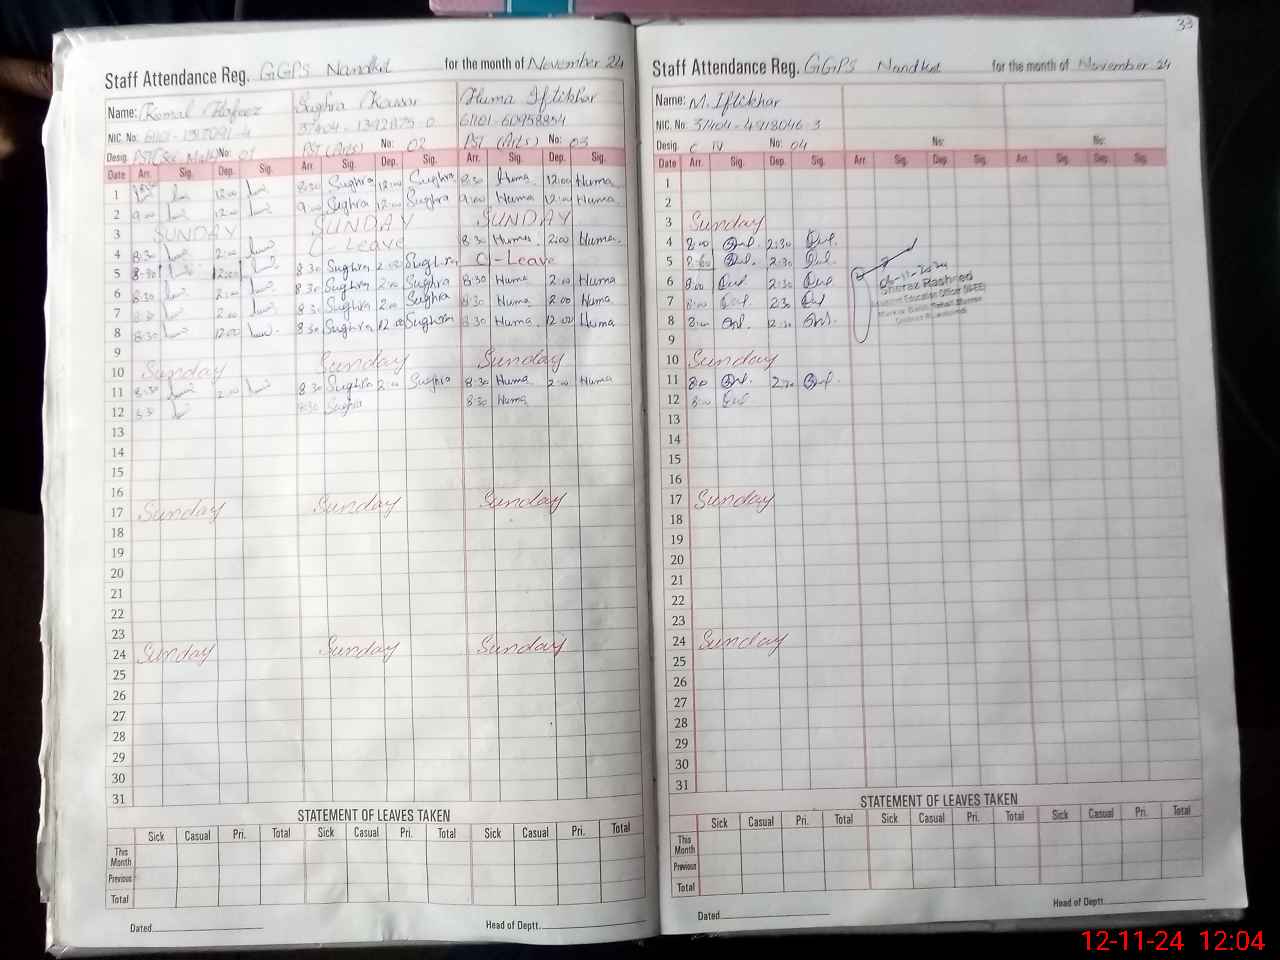 33
Staff Attendance Reg. GGPS Nandkot for the month of November 24
Name: Komal Hafeez Sughra Kausar Huma Iftikhar
NIC. No: 37404-1392875-0 61101-60958854
Desig. No: 01 PST (Arts) No: 02 PST (Arts) No: 03
Date Arr. Sig. Dep. Sig. Arr. Sig. Dep. Sig. Arr. Sig. Dep. Sig.
1 12:00 8:30 Sughra 12:00 Sughra 8:30 Huma 12:00 Huma
2 9:00 12:00 9:00 Sughra 12:00 Sughra 9:00 Huma 12:00 Huma
3 SUNDAY SUNDAY SUNDAY
4 8:30 2:00 C-Leave 8:30 Huma 2:00 Huma
5 8:30 2:00 8:30 Sughra 2:00 Sughra C-Leave
6 8:30 2:00 8:30 Sughra 2:00 Sughra 8:30 Huma 2:00 Huma
7 8:30 2:00 8:30 Sughra 2:00 Sughra 8:30 Huma 2:00 Huma
8 8:30 12:00 8:30 Sughra 12:00 Sughra 8:30 Huma 12:00 Huma
9
10 Sunday Sunday Sunday
11 8:30 2:00 8:30 Sughra 2:00 Sughra 8:30 Huma 2:00 Huma
12 8:30 8:30 Sughra 8:30 Huma
13
14
15
16
17 Sunday Sunday Sunday
18
19
20
21
22
23
24 Sunday Sunday Sunday
25
26
27
28
29
30
31
STATEMENT OF LEAVES TAKEN
Sick Casual Pri. Total Sick Casual Pri. Total Sick Casual Pri. Total
This Month
Previous
Total
Dated Head of Deptt.
Staff Attendance Reg. GGPS Nandkot for the month of November 24
Name: M. Iftikhar
NIC. No: 37404-4918046-3
Desig. C IV No: 04 No: No:
Date Arr. Sig. Dep. Sig. Arr. Sig. Dep. Sig. Arr. Sig. Dep. Sig.
1
2
3 Sunday
4 8:00 2:30
5 8:00 2:30
6 8:00 2:30
7 8:00 2:30
8 8:00 12:30
9
10 Sunday
11 8:00 2:30
12 8:00
13
14
15
16
17 Sunday
18
19
20
21
22
23
24 Sunday
25
26
27
28
29
30
31
Shiraz Rasheed
Education Officer
STATEMENT OF LEAVES TAKEN
Sick Casual Pri. Total Sick Casual Pri. Total Sick Casual Pri. Total
This Month
Previous
Total
Dated Head of Deptt.
12-11-24 12:04